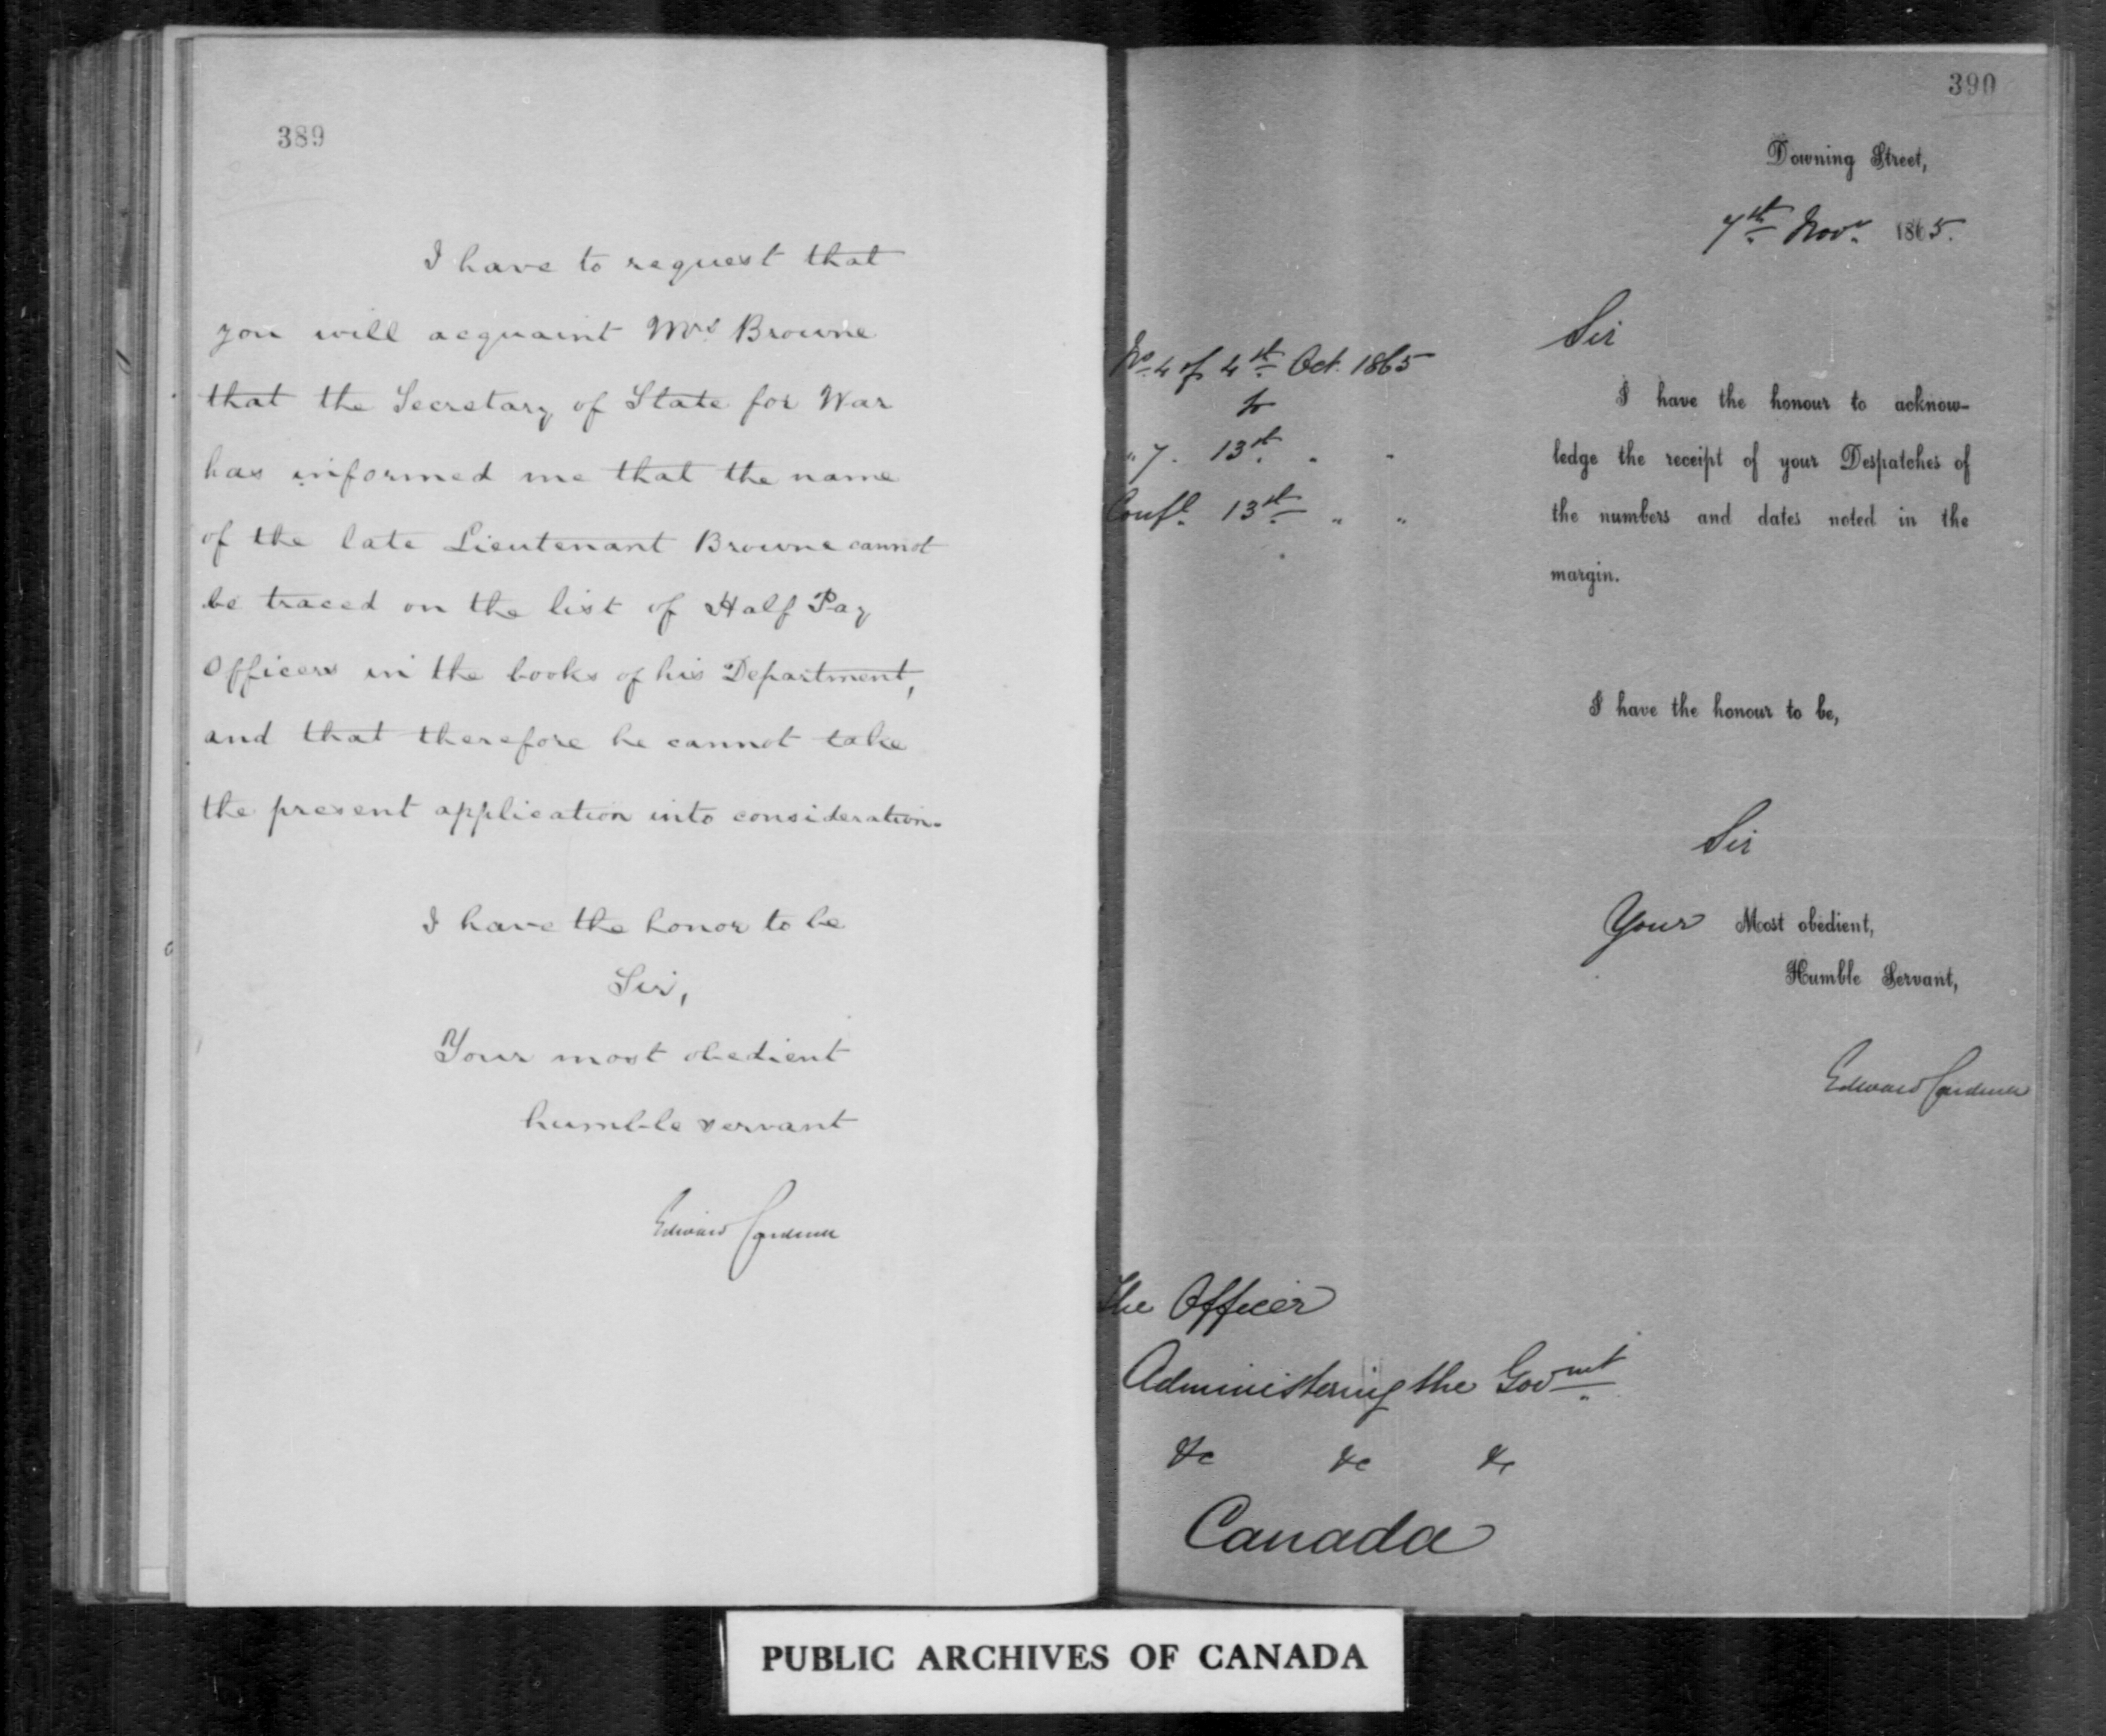 389
I have to request that
you will acquaint Mrs. Browne
that the Secretary of State for War
has informed me that the name
of the late Lieutenant Browne cannot
be traced on the list of Half Pay
Officers in the books of his Department,
and that therefore he cannot take
the present application into consideration.
I have the honor to be
Sir,
Your most obedient
humble servant
Edward Cardwell
390
Downing Street,
7th Novr. 1865.
Sir
No. 4 of 4th Oct. 1865
to
" 7. 13th " "
Confl. 13th " "
I have the honour to acknow-
ledge the receipt of your Despatches of
the numbers and dates noted in the
margin.
I have the honour to be,
Sir
Your Most obedient,
Humble Servant,
Edward Cardwell
The Officer
Administering the Govmt.
&c &c &c
Canada
PUBLIC ARCHIVES OF CANADA